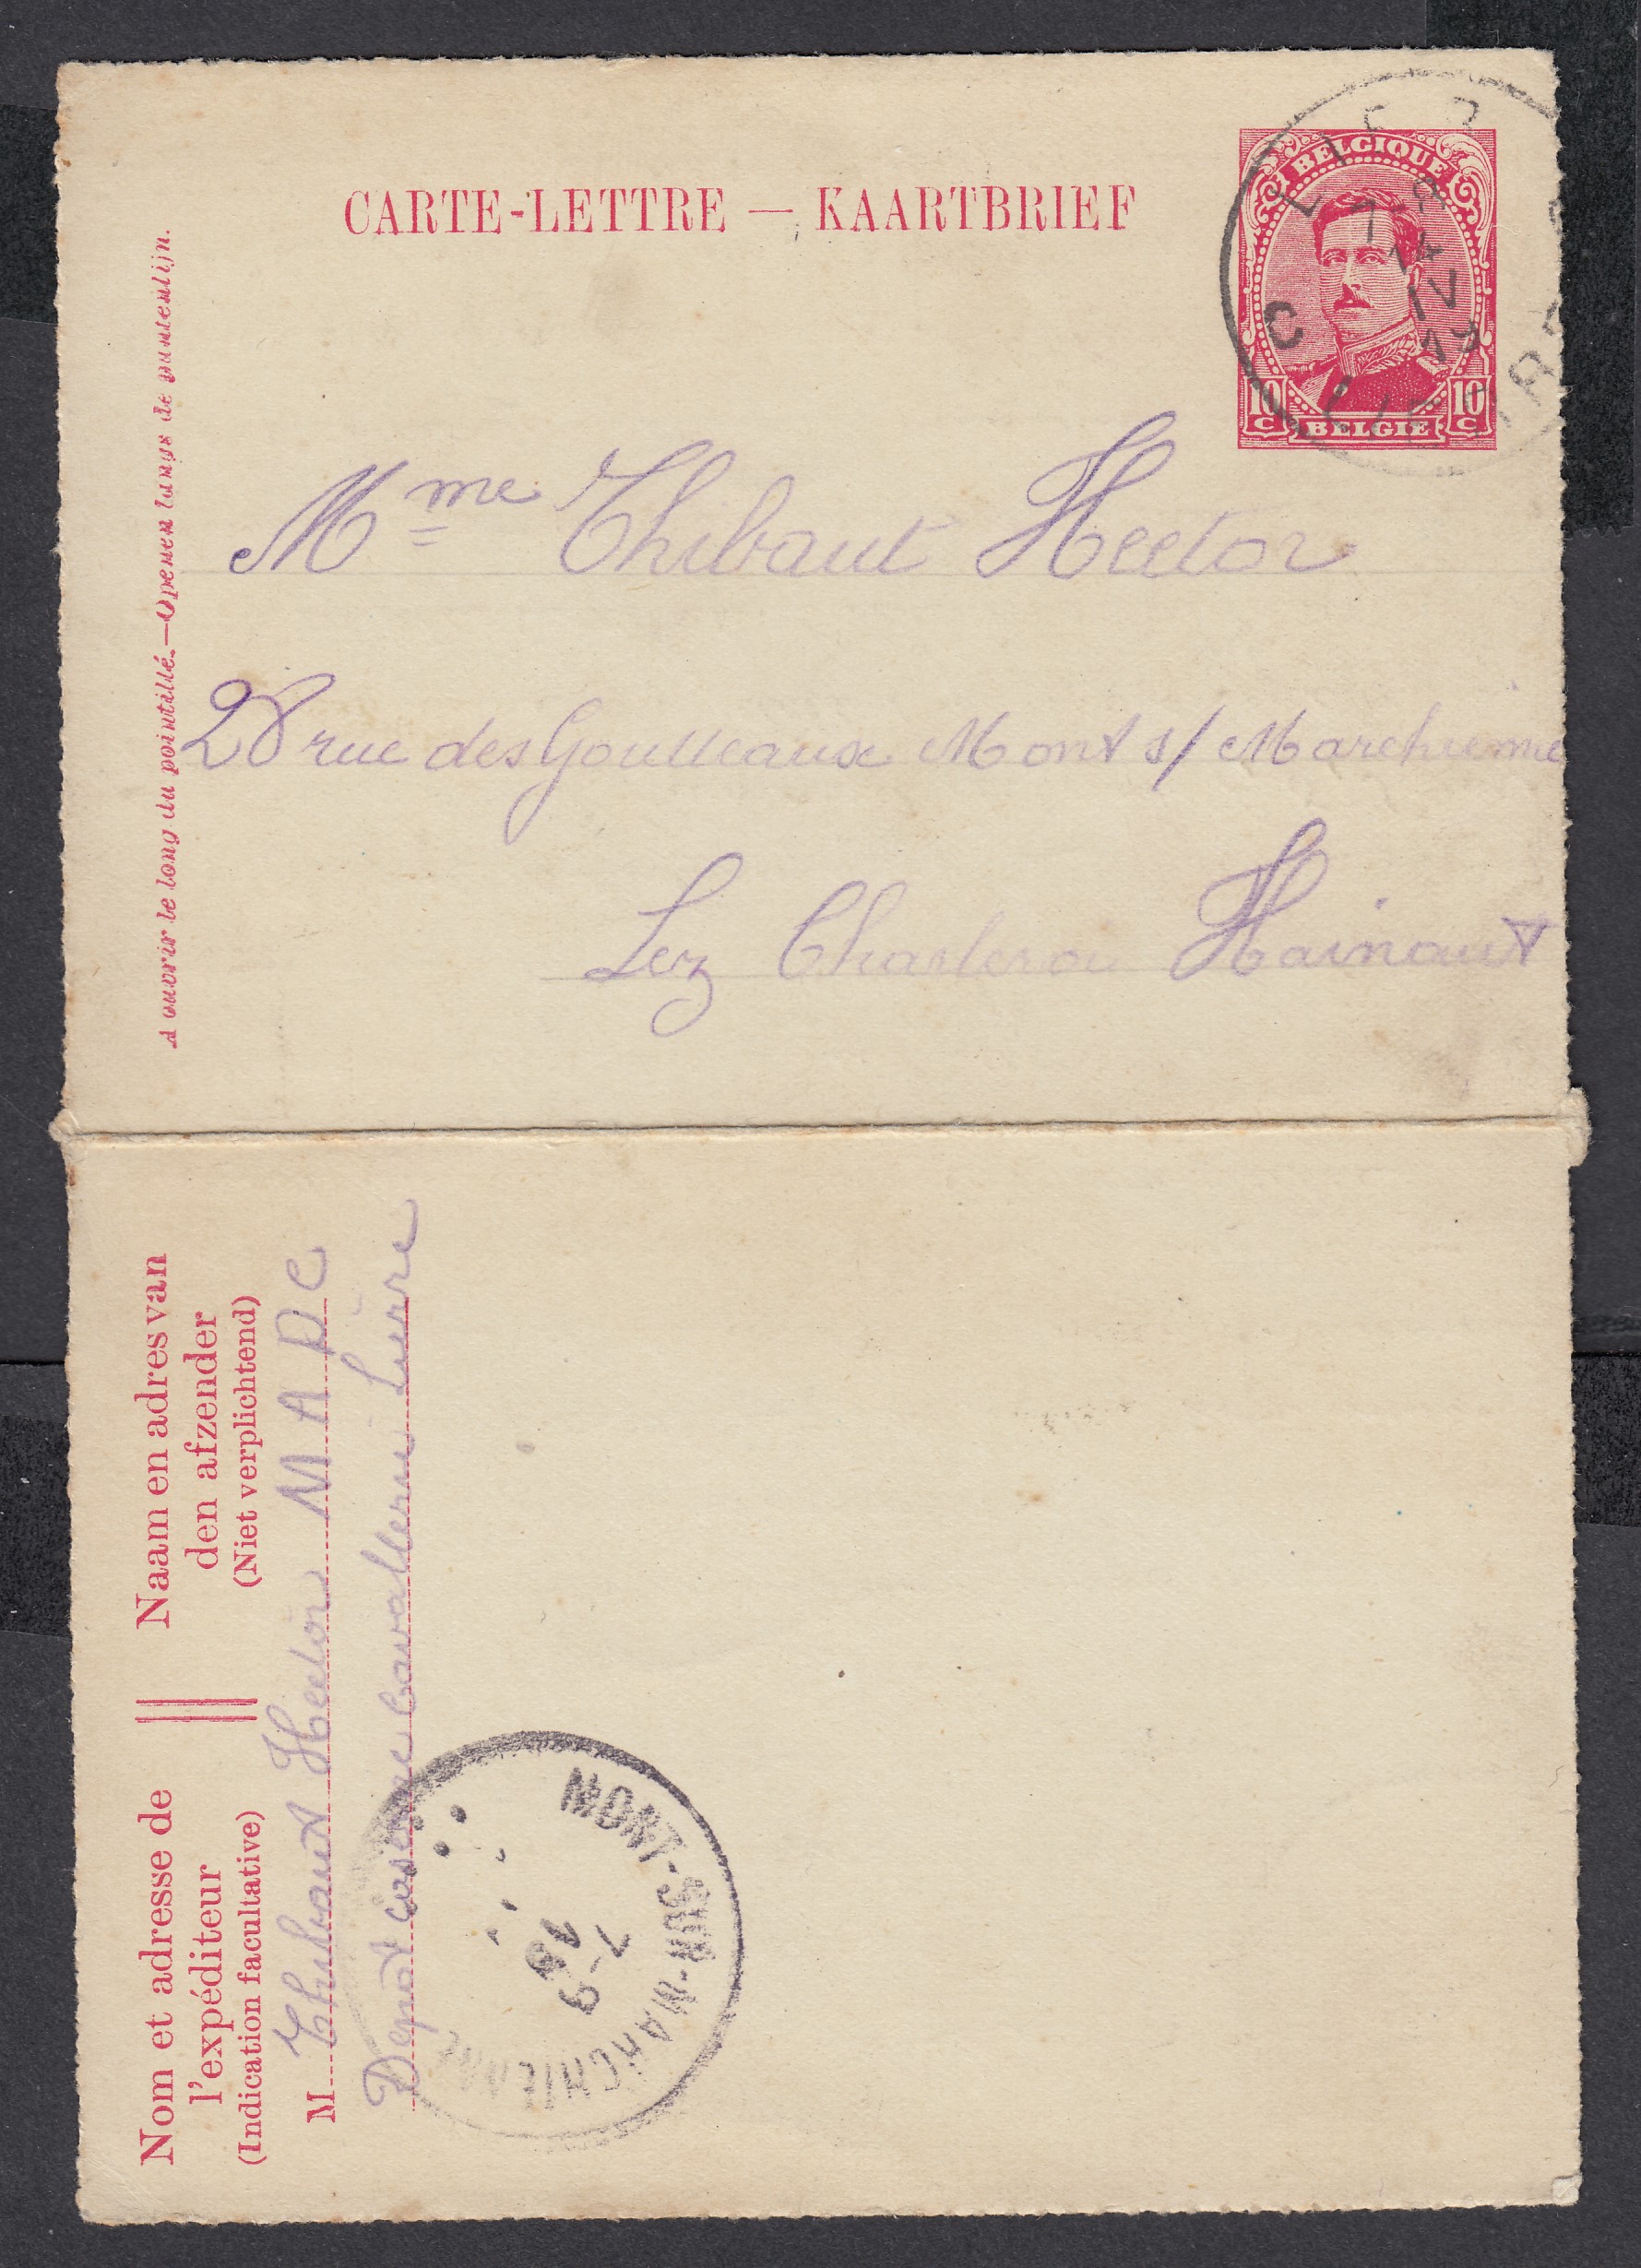 CARTE-LETTRE — KAARTBRIEF
BELGIQUE
10 C 10 C
BELGIE
LIER
7-8
14
IV
19
C
LIERRE
A ouvrir le long du pointillé.—Openen langs de puntenlijn.
Mme Thibaut Hector
28 rue des Goutteaux Mont s/ Marchienne
Lez Charleroi Hainaut
Nom et adresse de
l'expéditeur
(Indication facultative)
Naam en adres van
den afzender
(Niet verplichtend)
M Thibaut Hector M A D C
Depot Caserne Cavallerie Lierre
MONT-SUR-MARCHIENNE
7-9
19